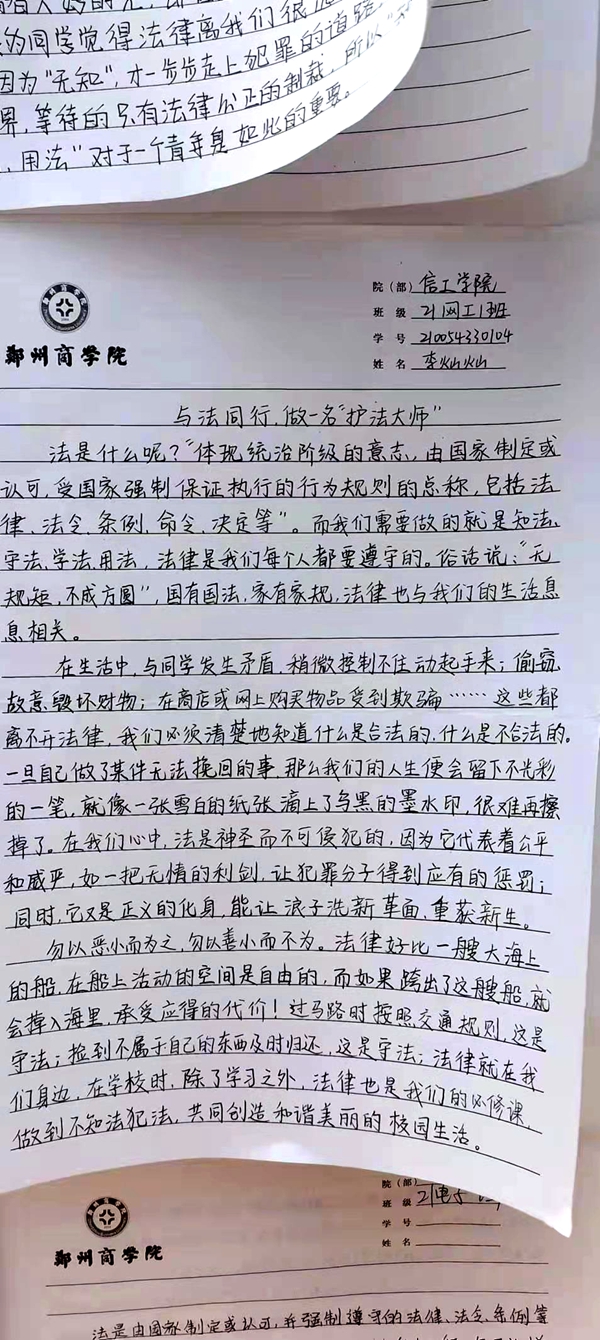 为同学觉得法律离我们很
因为“无知”，才一步步走上犯罪的道路
界，等待的只有法律公正的制裁，所以“
，用法”对于一个青年是如此的重要。
郑州商学院
院（部） 信工学院
班 级 21网工1班
学 号 210054330104
姓 名 李灿灿
与法同行，做一名“护法大师”
法是什么呢？“体现统治阶级的意志，由国家制定或
认可，受国家强制保证执行的行为规则的总称，包括法
律、法令、条例、命令、决定等”。而我们需要做的就是知法、
守法、学法、用法，法律是我们每个人都要遵守的。俗话说：“无
规矩，不成方圆”，国有国法，家有家规，法律也与我们的生活息
息相关。
在生活中，与同学发生矛盾，稍微控制不住动起手来；偷窃、
故意毁坏财物；在商店或网上购买物品受到欺骗……这些都
离不开法律，我们必须清楚地知道什么是合法的，什么是不合法的。
一旦自己做了某件无法挽回的事，那么我们的人生便会留下不光彩
的一笔，就像一张雪白的纸张滴上了乌黑的墨水印，很难再擦
掉了。在我们心中，法是神圣而不可侵犯的，因为它代表着公平
和威严，如一把无情的利剑，让犯罪分子得到应有的惩罚；
同时，它又是正义的化身，能让浪子洗新革面，重获新生。
勿以恶小而为之，勿以善小而不为。法律好比一艘大海上
的船，在船上活动的空间是自由的，而如果跨出了这艘船，就
会掉入海里，承受应得的代价！过马路时按照交通规则，这是
守法；捡到不属于自己的东西及时归还，这是守法；法律就在我
们身边，在学校时，除了学习之外，法律也是我们的必修课，
做到不知法犯法，共同创造和谐美丽的校园生活。
郑州商学院
院（部）
班 级 21电
学 号
姓 名
法是由国家制定或认可，并强制遵守的法律、法令、条例等